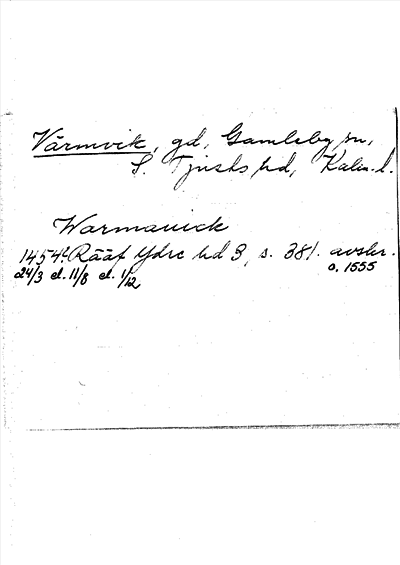 Värmvik, gd, Gamleby sn,
S. Tjusts hd, Kalm. l.
Warmauick
1454 Rääf Ydre hd 3, s. 381. avskr.
24/3 el. 11/8 el. 1/12
o. 1555